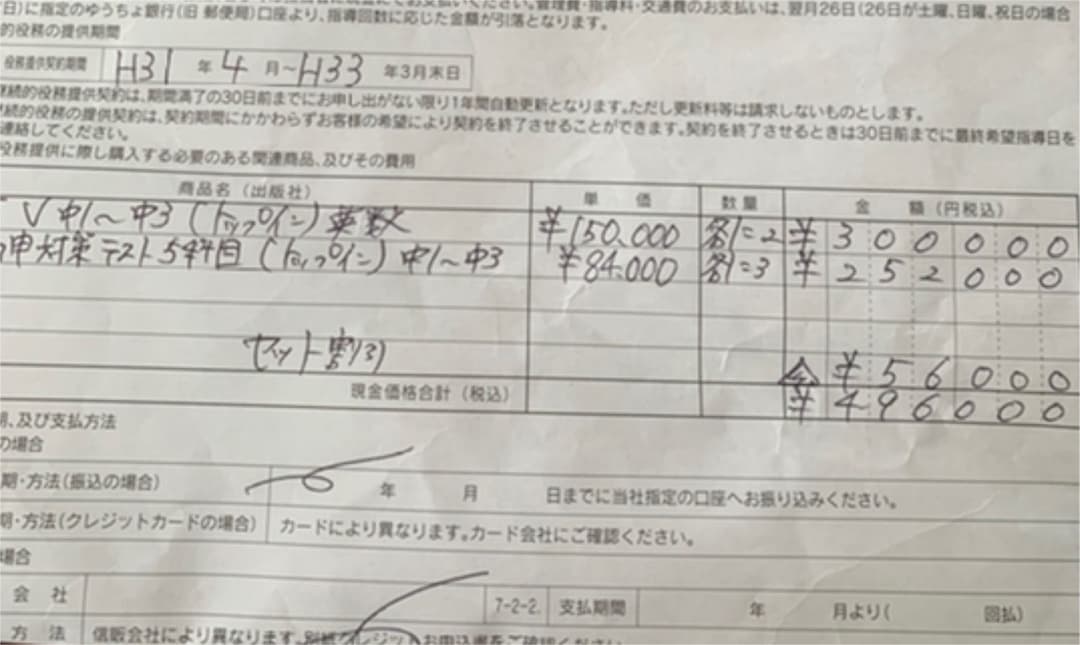 管理費・指導料・交通費のお支払いは、翌月26日(26日が土曜、日曜、祝日の場合
日)に指定のゆうちょ銀行(旧 郵便局)口座より、指導回数に応じた金額が引落となります。
的役務の提供期間
役務提供契約期間 H31 年 4 月〜H33 年3月末日
継続的役務提供契約は、期間満了の30日前までにお申し出がない限り1年間自動更新となります。ただし更新料等は請求しないものとします。
続的役務の提供契約は、契約期間にかかわらずお客様の希望により契約を終了させることができます。契約を終了させるときは30日前までに最終希望指導日を
連絡してください。
役務提供に際し購入する必要のある関連商品、及びその費用
商品名(出版社) 単価 数量 金額(円税込)
V中1〜中3(トップイン)英数 ¥150,000 各1=2 ¥300000
対策テスト5科目(トップイン)中1〜中3 ¥84,000 各1=3 ¥252000
セット割引 ¥56000
現金価格合計(税込) ¥496000
及び支払方法
の場合
期・方法(振込の場合) 年 月 日までに当社指定の口座へお振り込みください。
期・方法(クレジットカードの場合) カードにより異なります。カード会社にご確認ください。
場合
会社 7-2-2. 支払期間 年 月より( 回払)
方法 信販会社により異なります。別紙クレジットお申込書をご確認ください